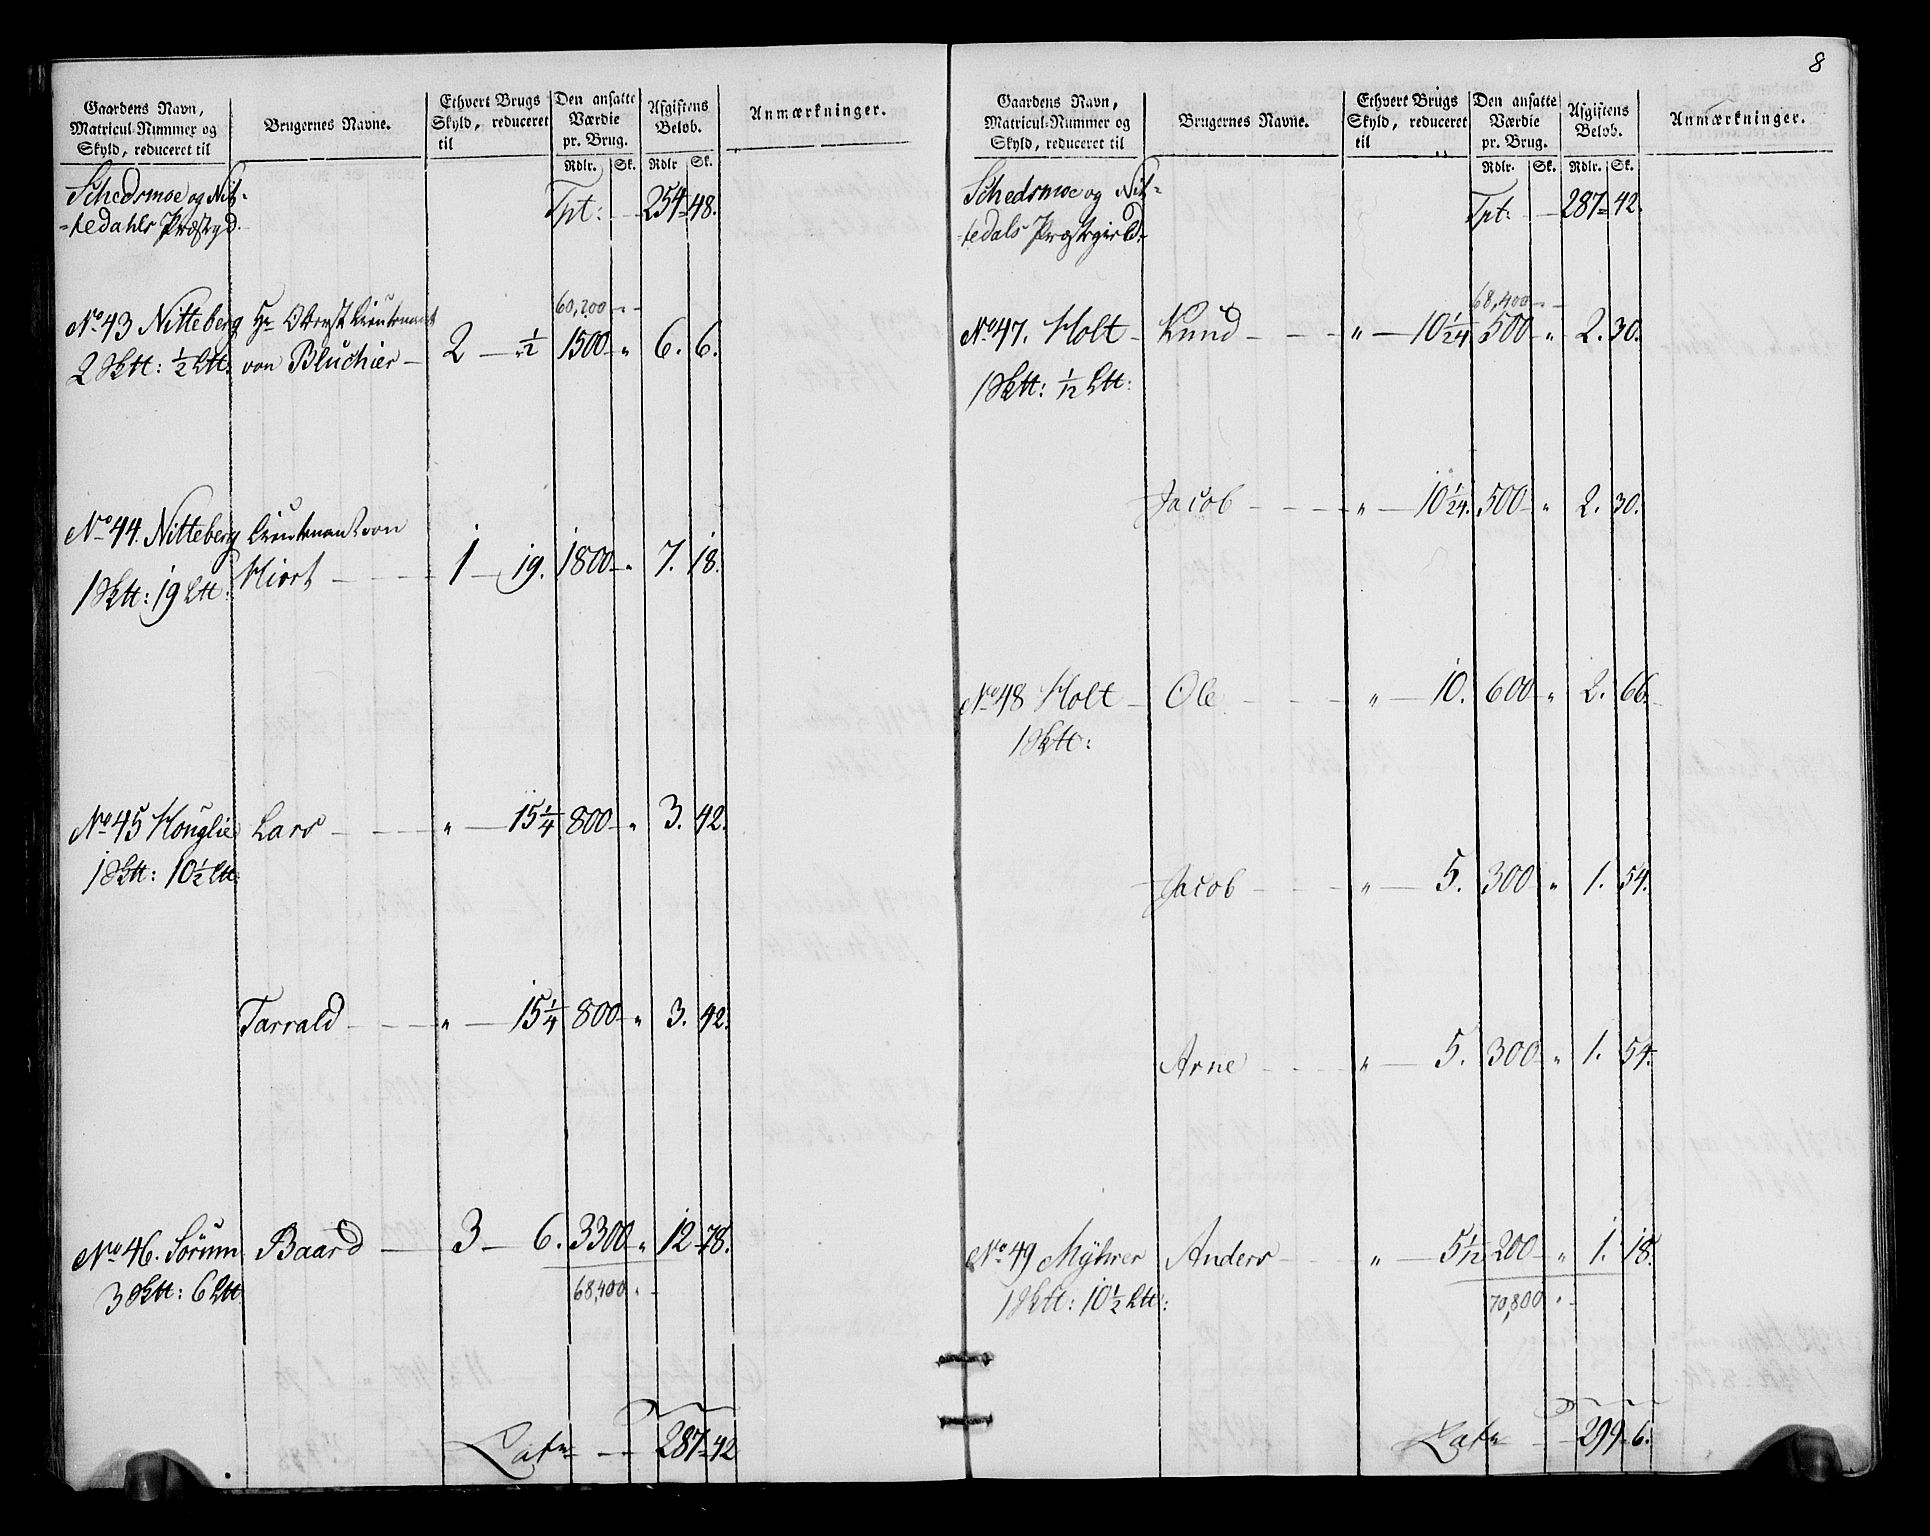 Gaardens Navn, Matricul-Nummer og Skyld, reduceret til | Brugernes Navne. | Ethvert Brugs Skyld, reduceret til | Den ansatte Værdie pr. Brug. Rdlr. Sk. | Afgiftens Beløb. Rdlr Sk. | Anmærkninger.
Schedsmoe og Nit-
-tedahls Præstgd. Tpt: 254 - 48.
60,200 - -
No 43 Nitteberg Hr Oberst Lieutenant
2 Sktt: ½ Ltt: von Bluchier - 2 - " ½ 1500 - " 6. 6.
No 44. Nitteberg Lieutenant von
1 Sktt: 19 Ltt: Hiort - 1 - 19. 1800 - " 7. 18.
No 45 Houglie Lars - " - 15¼ 800 - " 3. 42.
1 Sktt: 10½ Ltt:
Tarrald - " - 15¼ 800 - " 3. 42.
No 46. Sørum Baard - 3 - 6. 3300 - " 12 - 78.
3 Sktt: 6 Ltt 68,400 " -
Latr 287 - 42
8
Gaardens Navn, Matricul-Nummer og Skyld, reduceret til | Brugernes Navne. | Ethvert Brugs Skyld, reduceret til | Den ansatte Værdie pr. Brug. Rdlr. Sk. | Afgiftens Beløb. Rdlr. Sk. | Anmærkninger.
Schedsmoe og Nit-
-tedals Præstegield - Tpt: 287 - 42.
68,400 - -
No 47. Holt - Knud - " - 10 1/24 500 " 2. 30.
1 Sktt: 1/12 Ltt:
Jacob - " - 10 1/24. 500 - " 2. 30.
No 48 Holt - Ole - " - 10. 600 - " 2. 66.
1 Sktt:
Jacob - " - 5. 300 " 1. 54.
Arne - " - 5. 300 - " 1. 54.
No 49 Mÿhrer Anders - " - 5½ 200 - " 1. 18.
1 Sktt: 10½ Ltt: 70,800 " -
Latr 299 - 6.